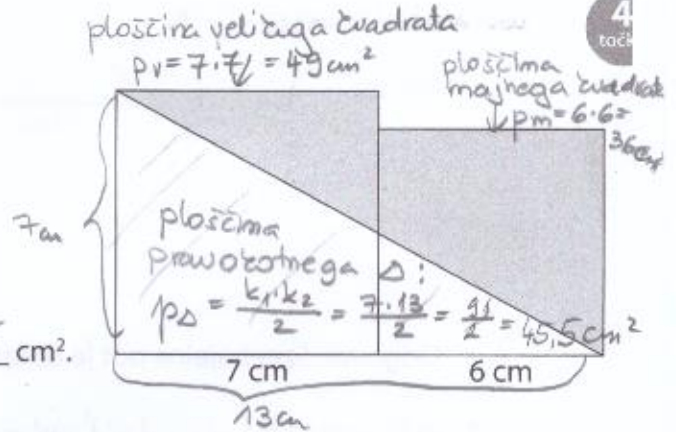 ploščina večjega kvadrata
pv = 7·7 = 49 cm²
4
točk
ploščina
manjšega kvadrata
pm = 6·6 =
36 cm²
7 cm
ploščina
pravokotnega Δ:
pΔ = k₁·k₂/2 = 7·13/2 = 91/2 = 45,5 cm²
cm².
7 cm
6 cm
13 cm